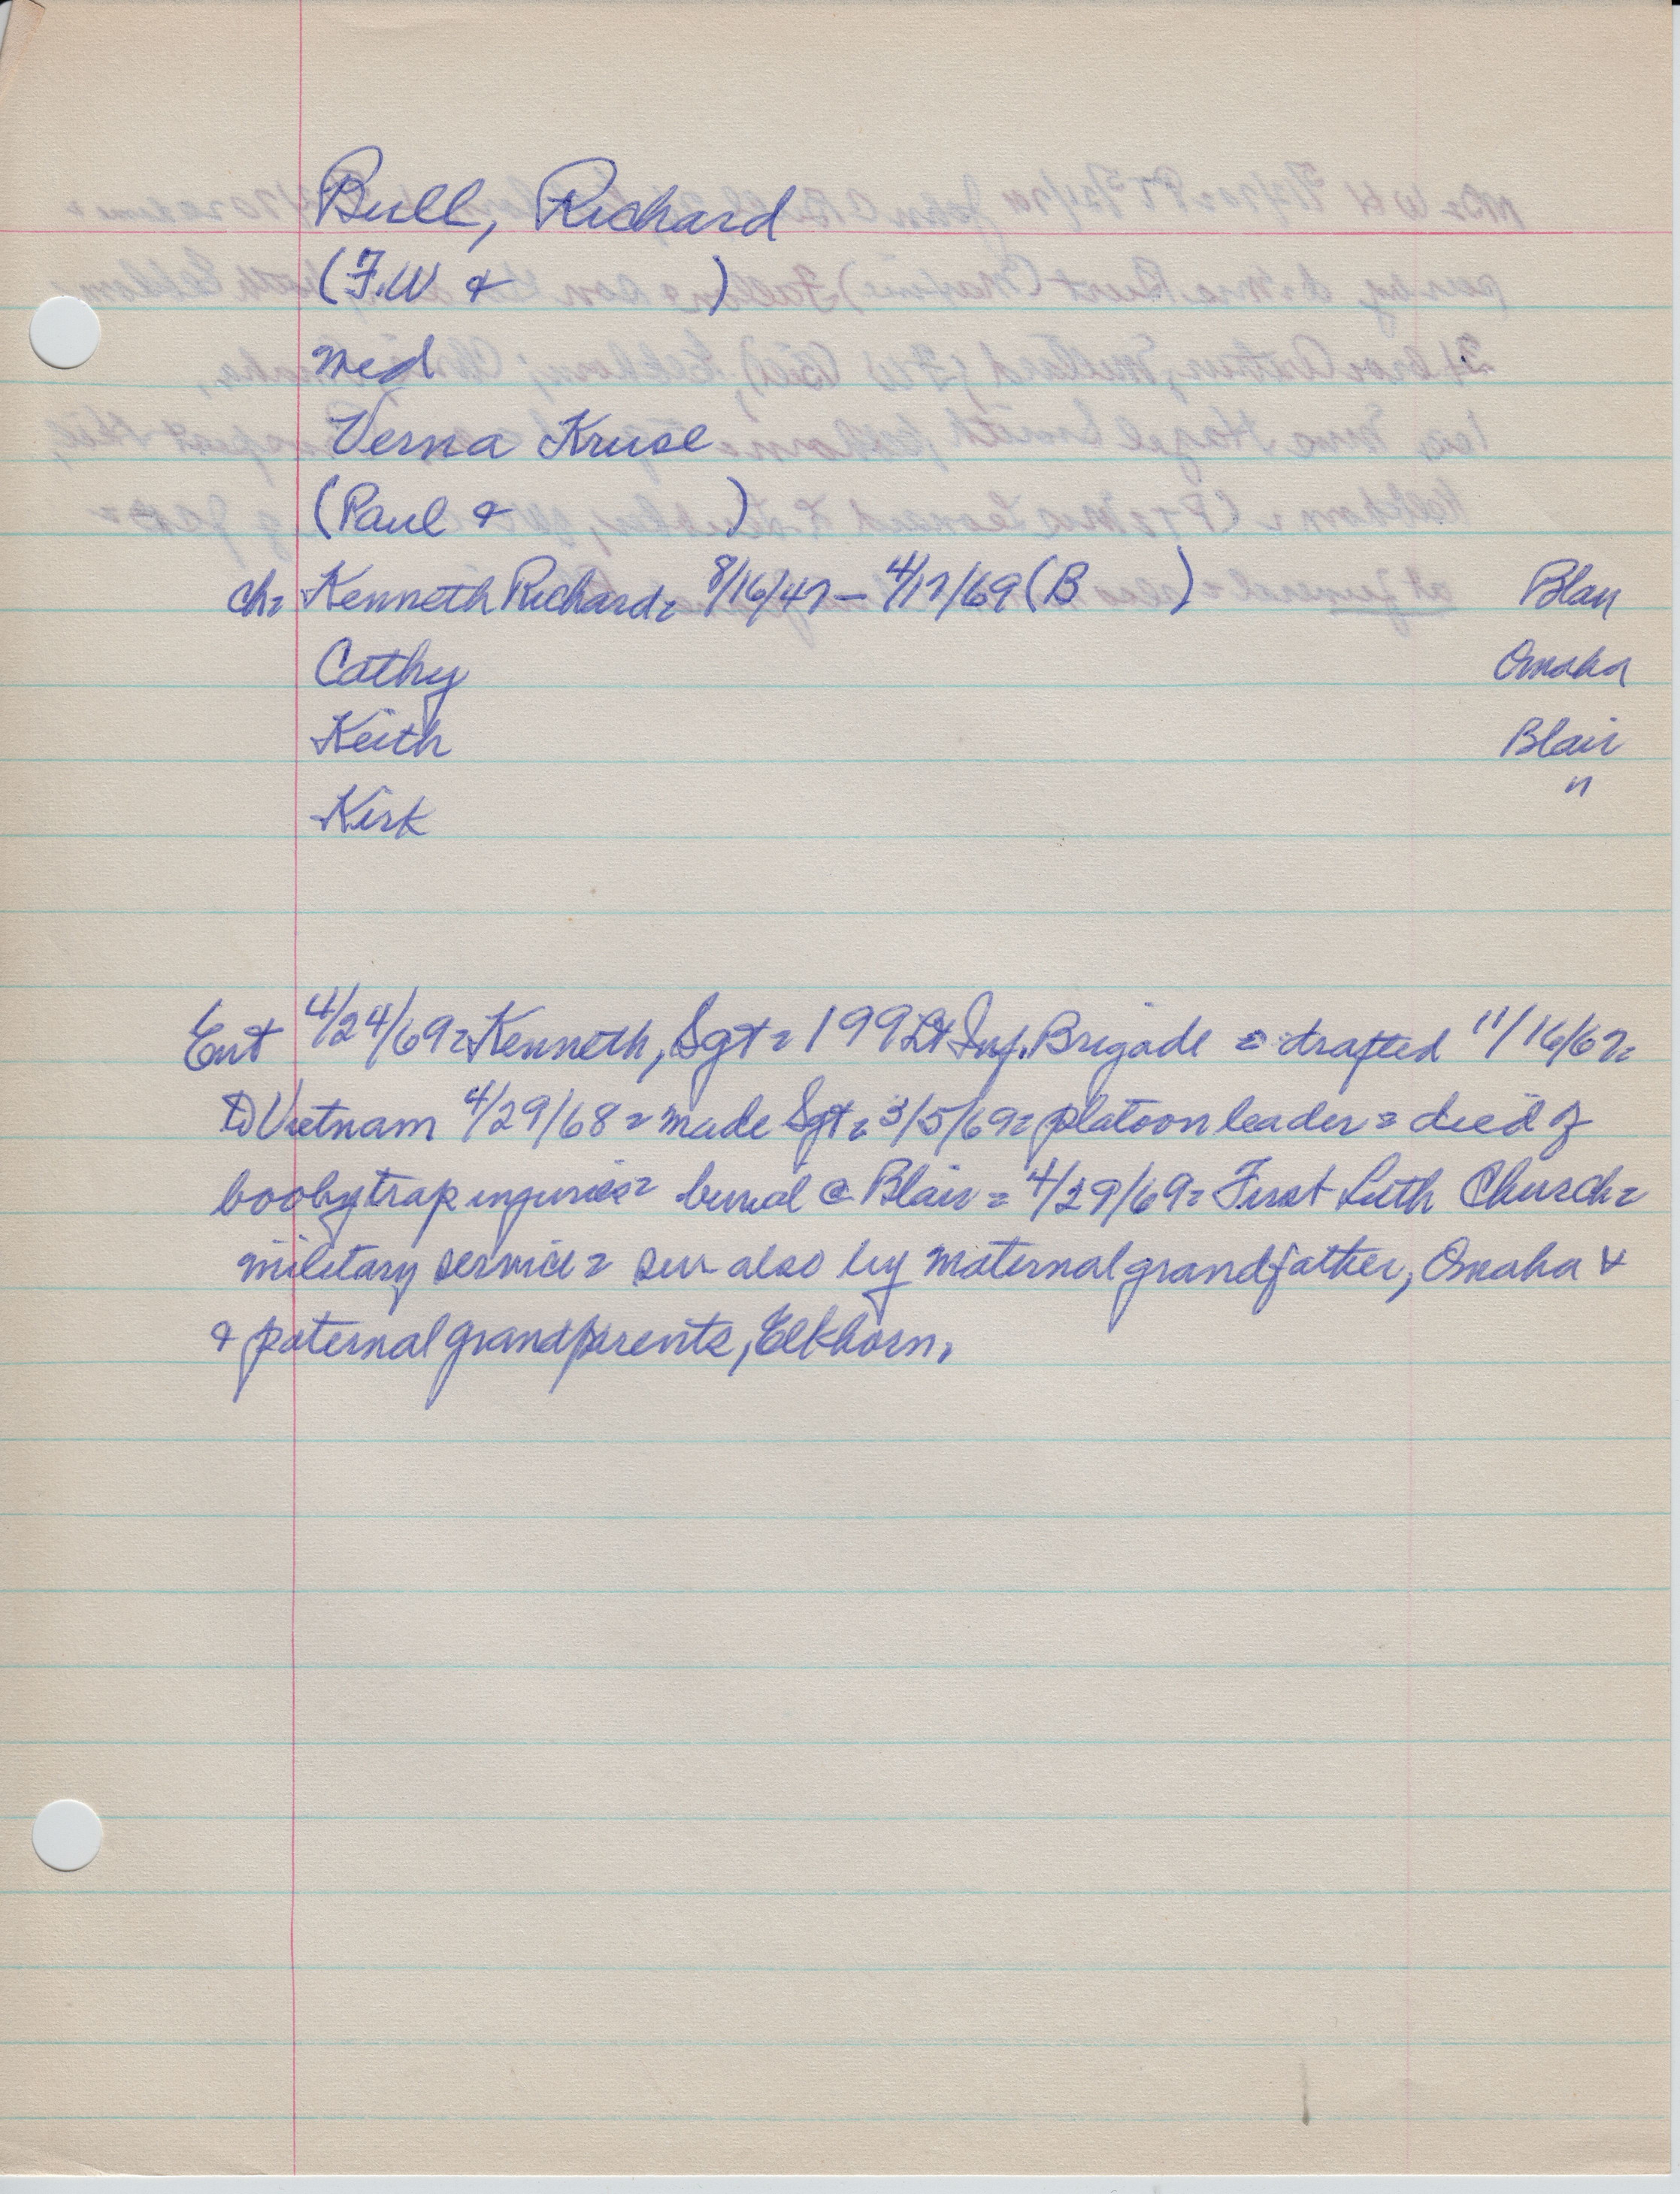 Bull, Richard
(F.W & )
med
Verna Kruse
(Paul & )
ch= Kenneth Richard= 8/16/47 – 4/17/69 (B ) Blair
Cathy Omaha
Keith Blair
Kirk "
Ent 4/24/69= Kenneth, Sgt= 199 Lt Inf. Brigade = drafted 11/16/67=
to Vietnam 4/29/68= made Sgt= 3/5/69= platoon leader= died of
boobytrap injuries= burial @ Blair= 4/29/69= First Luth Church=
military service= sur also by maternal grandfather, Omaha &
& paternal grandparents, Elkhorn.